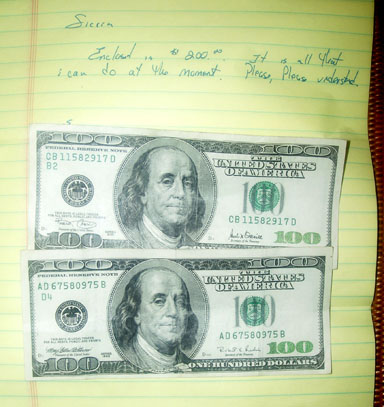 Sierra
Enclosed is $ 200.00. It is all that
i can do at the moment. Please, Please understand.
FEDERAL RESERVE NOTE
THE
UNITED STATES
OF AMERICA
CB 11582917 D
B2
CB 11582917 D
100
100
FEDERAL RESERVE NOTE
THE
UNITED STATES
OF AMERICA
AD 67580975 B
D4
100
AD 67580975 B
100
ONE HUNDRED DOLLARS